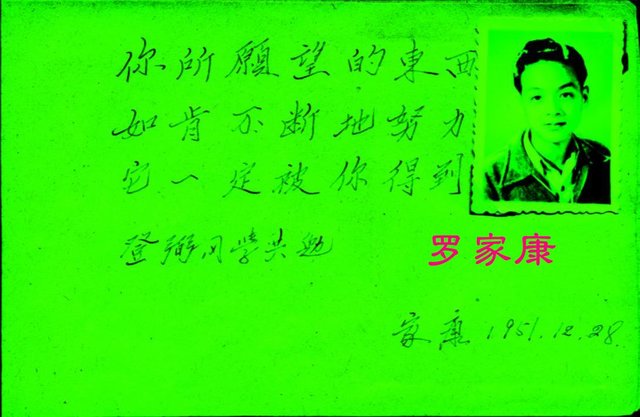 你所願望的東西
如肯不断地努力
它一定被你得到
登弼同學共勉
罗家康
家康 1951.12.28.